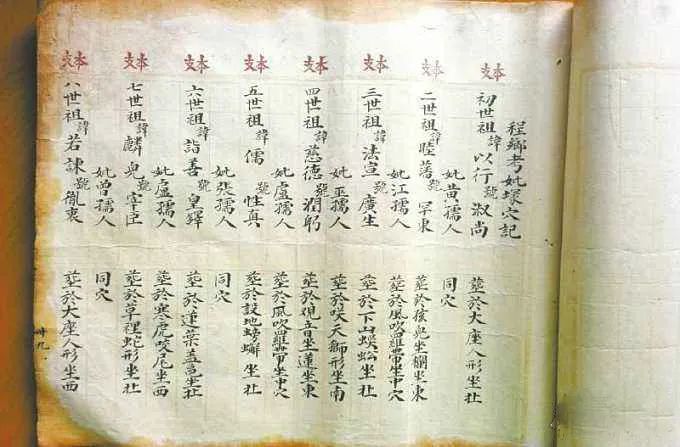 程鄉考妣墳穴記
本支 初世祖諱以行號淑尚 葬於大座人形坐北
妣黃孺人 同穴
本支 二世祖諱睦藩號罕東 葬於坐東
妣江孺人 葬於風吹羅帶坐中穴
本支 三世祖諱法宣號廣生 葬於下山蜈蚣坐北
妣巫孺人 葬於吠天獅形坐南
本支 四世祖諱慈德號潤躬 葬於觀音坐蓮坐東
妣盧孺人 葬於風吹羅帶坐中穴
本支 五世祖諱儒號性真 葬於設地螃蠏坐北
妣張孺人 同穴
本支 六世祖諱詣善號皇鐸 葬於蓮葉蓋坐北
妣盧孺人 葬於寒虎咬尼坐西
本支 七世祖諱麟兒號宰臣 葬於草裡蛇形坐北
妣曾孺人 同穴
本支 八世祖諱若諫號胤衷 葬於大座人形坐西
卄九